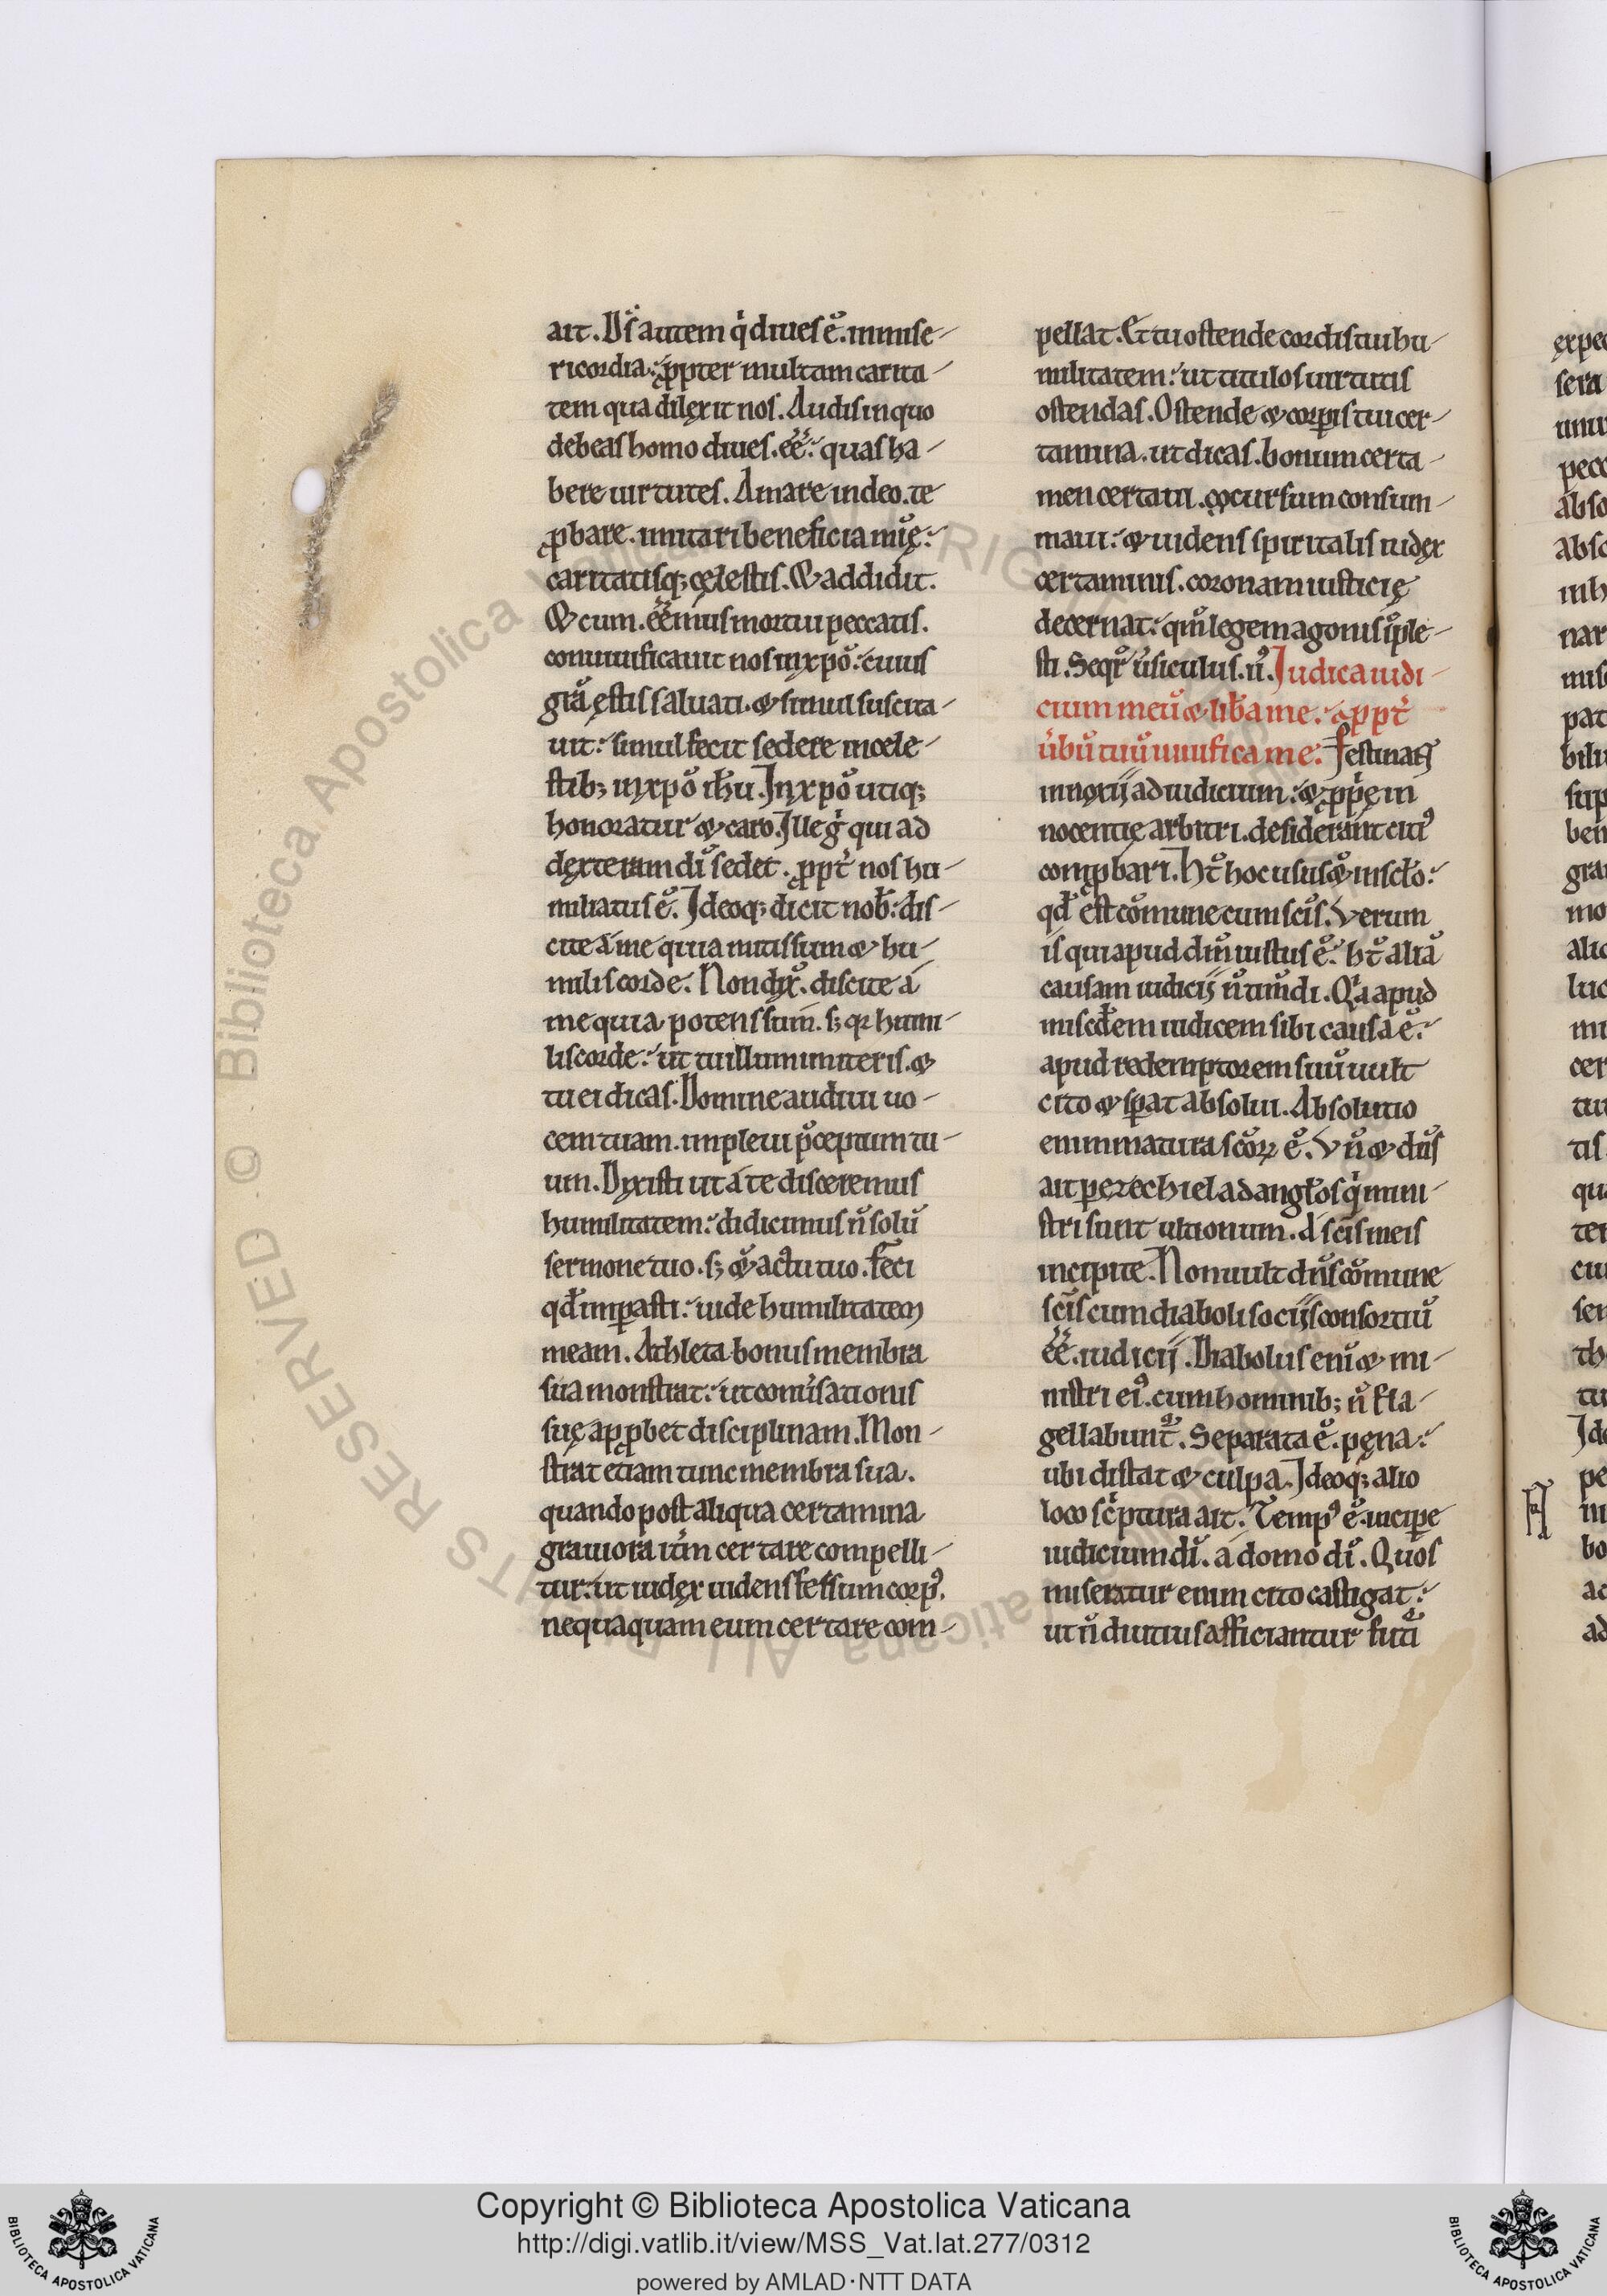 ait. Ds̄ autem q̇ diues ē. in mise-
ricordia: ꝓpter multam carita-
tem qua dilęxit nos. Audis in quo
debeas homo diues. eē: quas ha-
bere uirtutes. Amare in deo. te
ꝓbare. imitari beneficia mīę:
caritatisq; cęlestis. & addidit.
& cum. eēmus mortui peccatis.
conuiuificauit nos in xp̄o: cuius
gr̄a ęstis saluati. & simul suscita-
uit: simul fecit sedere in cele-
stib; in xp̄o ih̄u. In xp̄o utiq;
honoratur & caro. Ille g̊ qui ad
dęxteram dī sedet. ꝓpt̄ nos hu-
miliatus ē. Ideoq; dicit nob̄: dis-
cite á me quia mitis sum & hu-
milis corde. Non dix̄. discite á
me quia potens sum. s; qꝛ humi-
lis corde: ut tu illum imiteris. &
tu ei dicas. Domine audiui uo-
cem tuam. impleui p̄ceptum tu-
um. Dixisti ut á te disceremus
humilitatem: didicimus n̄ solū
sermone tuo. s; & actu tuo. Feci
qđ imꝑasti: uide humilitatem
meam. Athleta bonus membra
sua monstrat: ut conuersationis
suę apꝓbet disciplinam. Mon-
strat etiam tunc membra sua.
quando post aliqua certamina
grauiora it̄m certare compelli-
tur: ut iudęx uidens fessum corp᾿.
nequaquam eum certare com-
pellat. Et tu ostende cordis tui hu-
militatem: ut titulos uirtutis
ostendas. Ostende & corꝑis tui cer-
tamina. ut dicas. bonum certa-
men certaui. & cursum consum-
maui: & uidens spiritalis iudęx
certaminis. coronam iusticię
decernat: qm̄ legem agonis īple-
sti. Seqr̄ ūsiculus. n̄. Iudica iudi-
cium meū & lib̄a me: ꝓpt̄
ūbū tuū uiuifica me: Festinans
innoxij ad iudicium: & ꝓpę in
nocentię arbitri. desiderant citi᾿
comꝓbari. Ht̄ hoc usus & in sc̄lo:
qđ est cōmune cum sc̄is. Verum
is qui apud dn̄m iustus ē. ht̄ aliā
causam iudicij n̄ timdi. Qa apud
miscđem iudicem sibi causa ē:
apud redemptorem suū uult
cito & sꝑat absolui. Absolutio
enim matura sc̄oꝝ ē. Vn̄ & dn̄s
ait ꝑ ezechiel ad angl̄os q̇ mini-
stri sunt ultionum. á sc̄is meis
incipite. Non uult dn̄s cōmune
sc̄is cum diaboli socijs consortiū
eē. iudicij. Diabolus enī & mi-
nistri ei᾿. cum hominib; n̄ fla-
gellabunt̄. Separata ē. pęna:
ubi distat & culpa. Ideoq; alio
loco sc̄ptura ait. Temp᾿ ē. inciꝑe
iudicium dī. á domo dī. Quos
miseratur enim cito castigat:
ut n̄ diutius afficiantur futi
Copyright © Biblioteca Apostolica Vaticana
http://digi.vatlib.it/view/MSS_Vat.lat.277/0312
powered by AMLAD·NTT DATA